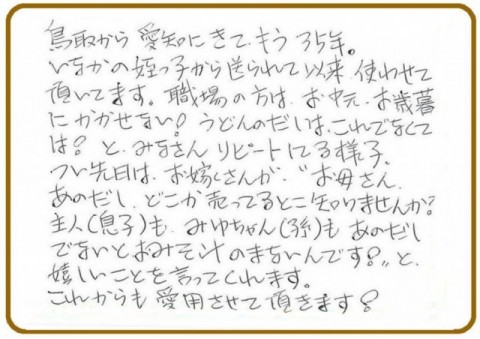 鳥取から 愛知にきて、もう 35年。
いなかの姪っ子から送られて以来、使わせて
頂いてます。職場の方は、お中元、お歳暮
にかかせない! うどんのだしは、これでなくて
は? と、みなさん リピートしてる様子。
つい先日は、お嫁さんが、〝お母さん、
あのだし、どこか売ってるとこ知りませんか?
主人(息子)も、みゆちゃん(孫)も あのだし
でないとおみそ汁のまないんです?〟と、
嬉しいことを言ってくれます。
これからも 愛用させて頂きます!